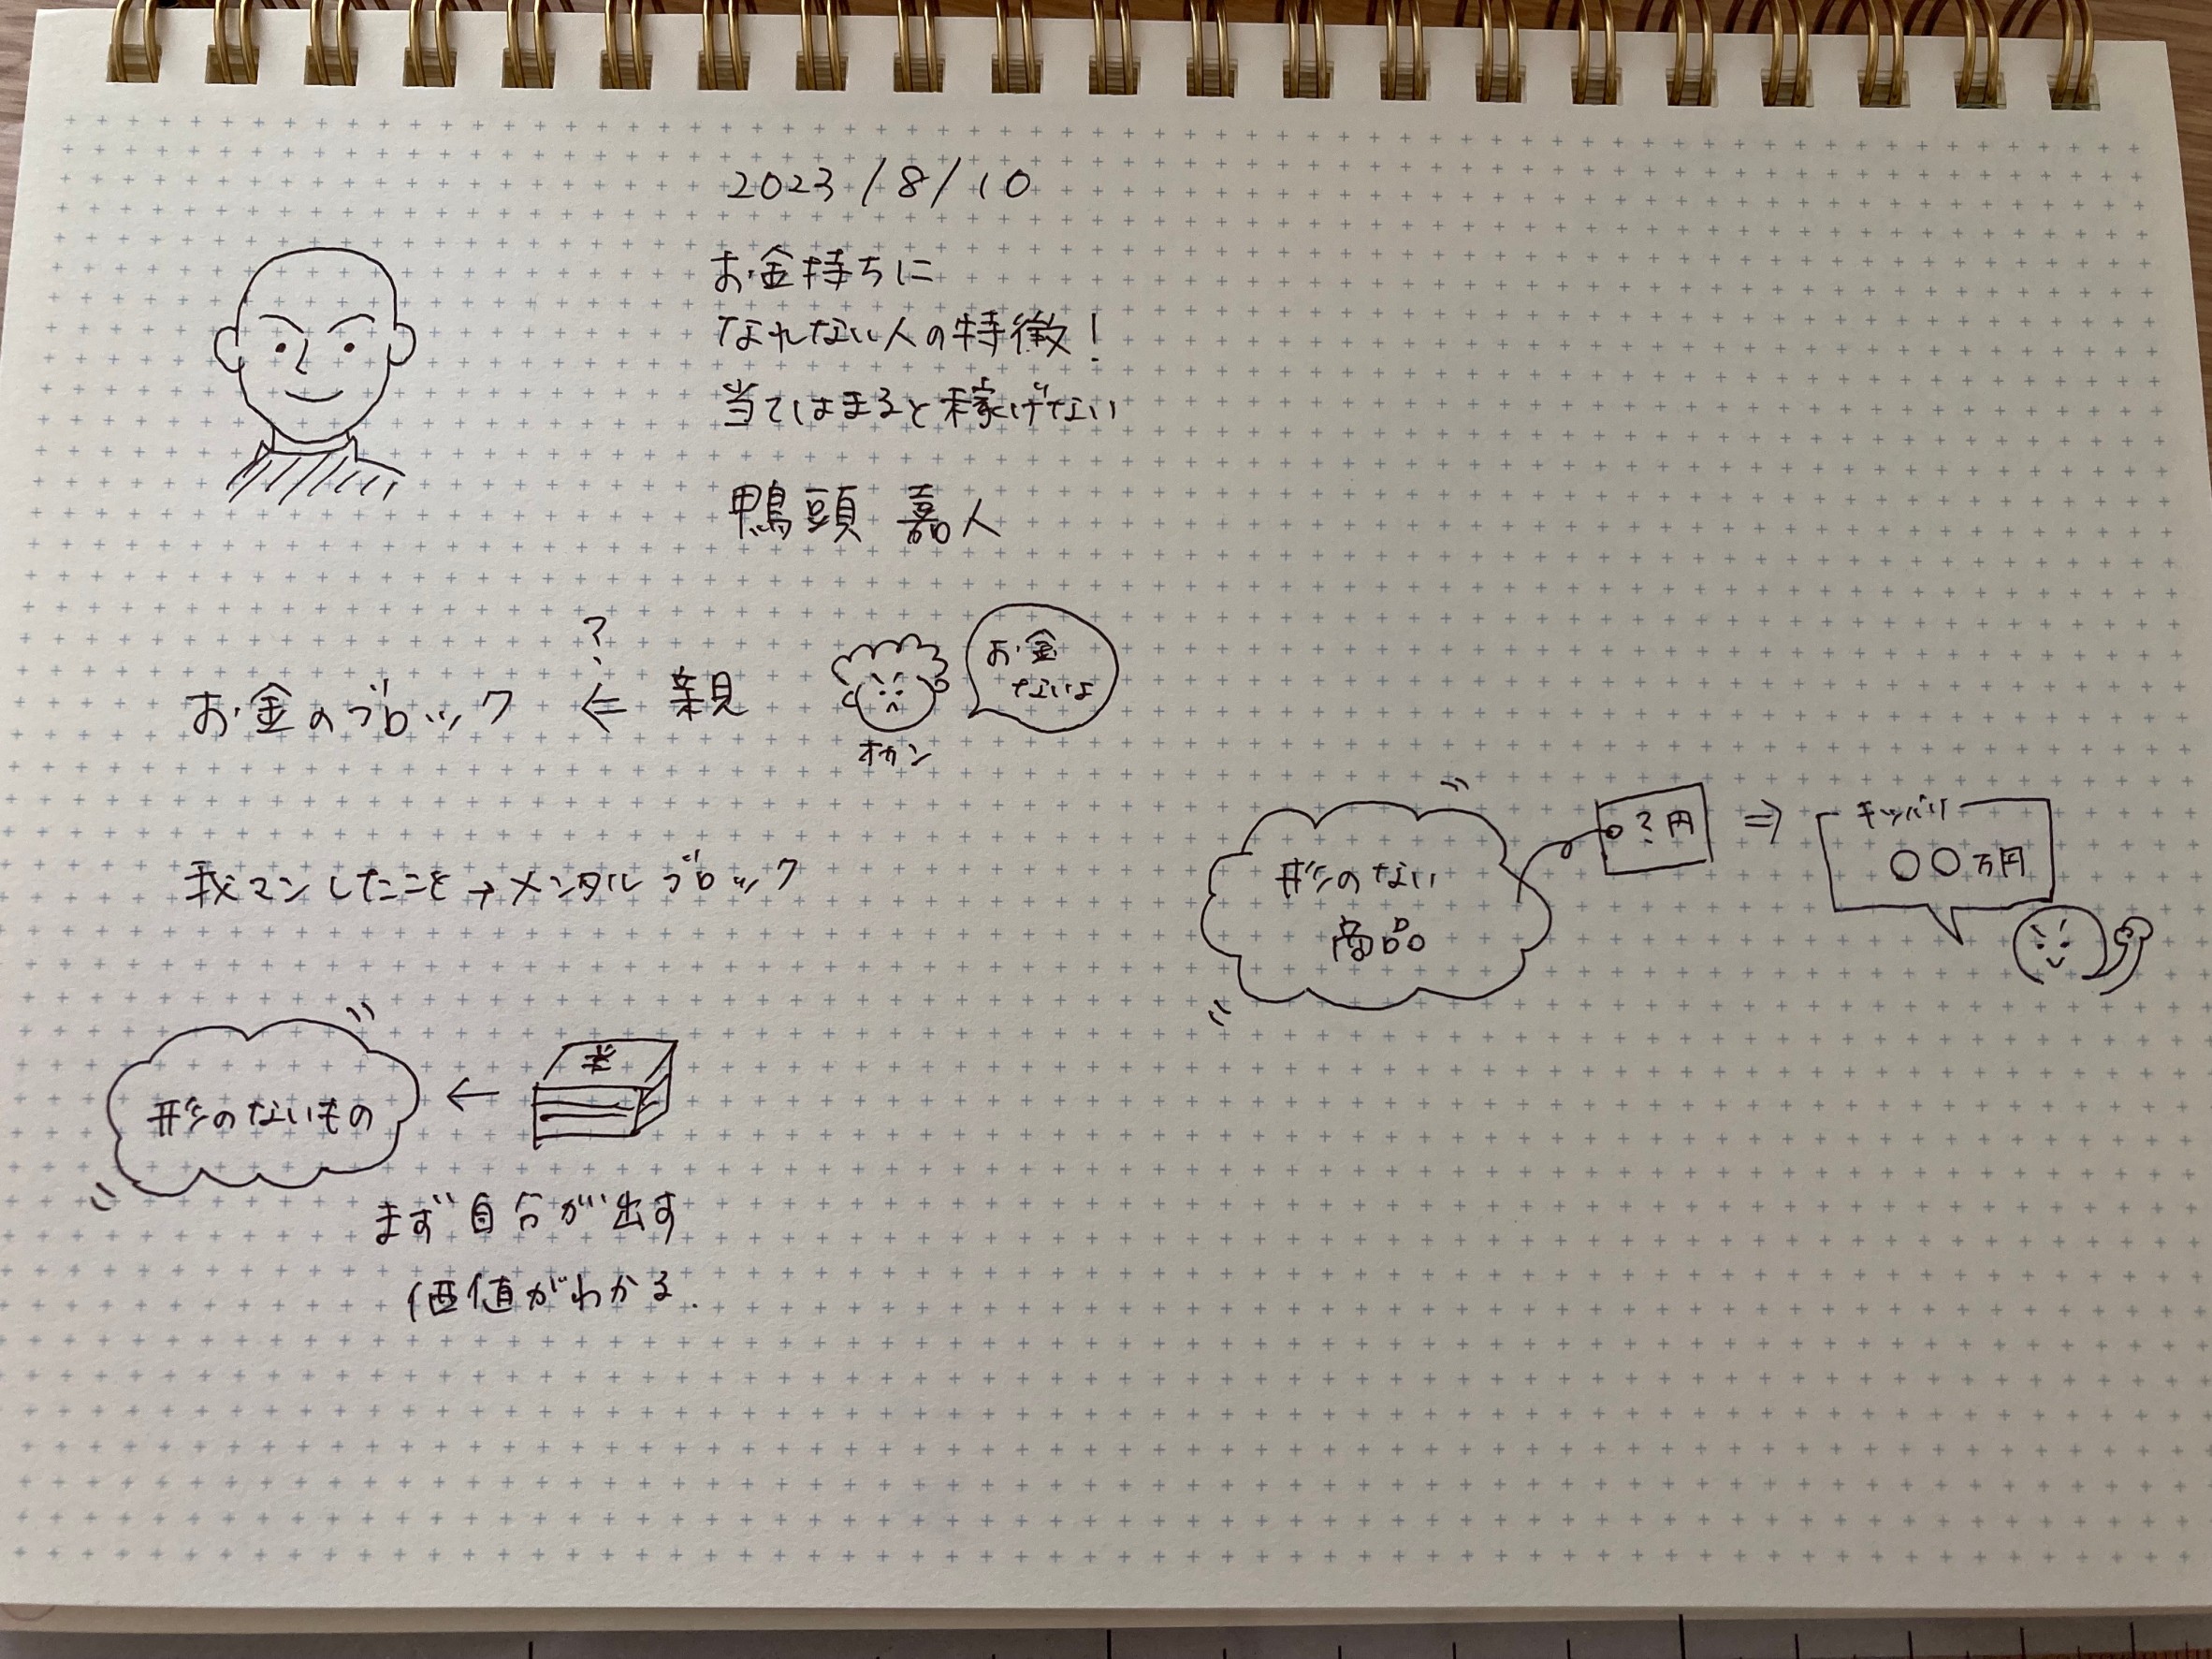 2023/8/10
お金持ちに
なれない人の特徴!
当てはまると稼げない
鴨頭 嘉人
?
お金のブロック ← 親
お金
ないよ
オカン
我マンしたこと→メンタルブロック
形のない
商品
?円 ⇒
キッパリ
〇〇万円
形のないもの ←
¥
まず自分が出す
価値がわかる.